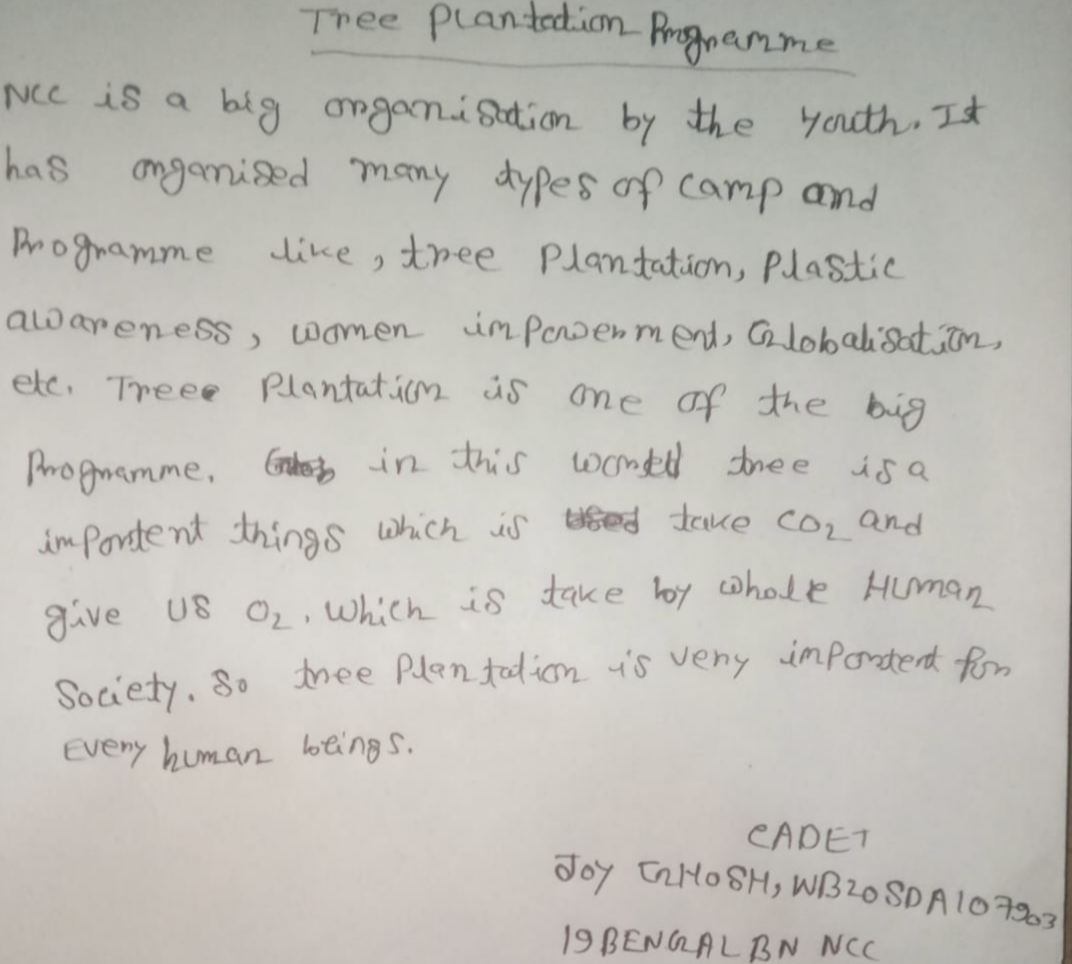 Tree Plantation Programme
NCC is a big organisation by the youth. It
has organised many types of camp and
Programme like, tree Plantation, Plastic
awareness, women impowerment, Globalisation,
etc. Tree Plantation is one of the big
Programme. in this world tree is a
importent things which is take CO2 and
give US O2. Which is take by whole Human
Society. So tree Plantation is very importent for
Every human beings.
CADET
JOY GHOSH, WB20SDA107903
19 BENGAL BN NCC